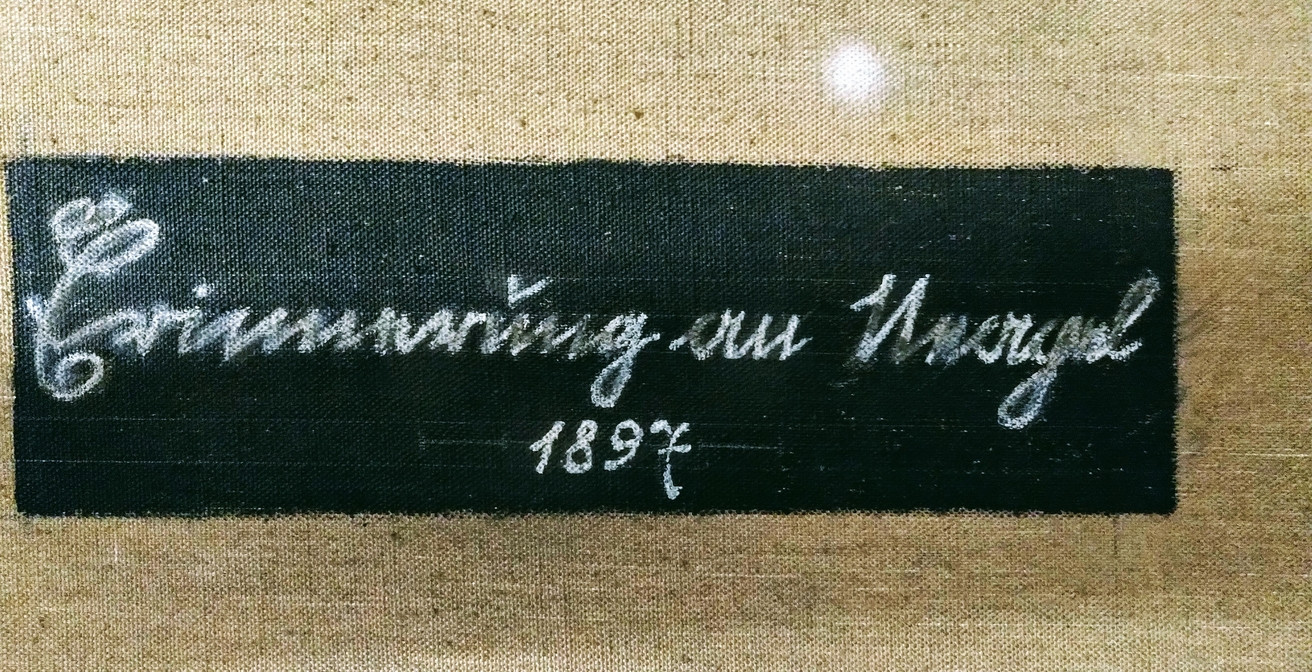 Erinnerung an Neapel
1897